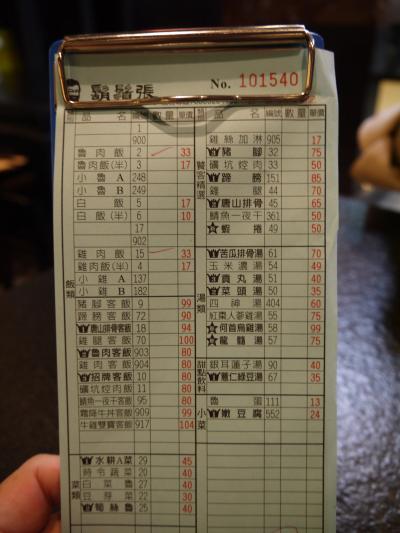 鬍鬚張
No. 101540
品 名 編號 數量 單價
1
900
魯肉飯 2 33
魯肉飯(半) 3 17
小魯A 248
小魯B 249
白飯 5 17
白飯(半) 6 10
17
902
飯類
雞肉飯 15 33
雞肉飯(半) 4 17
小雞A 137
小雞B 182
豬腳客飯 9 99
蹄膀客飯 72 90
唐山排骨客飯 18 94
雞腿客飯 70 100
魯肉客飯 903 80
雞肉客飯 904 80
招牌客飯 10 80
礦坑焢肉飯 11 80
鯖魚一夜干客飯 95 80
霜降牛丼客飯 909 99
牛雞雙寶客飯 917 104
菜類
水耕A菜 29 45
時令蔬菜 20 40
白菜魯 27 40
豆芽菜 22 30
筍絲魯 25 40
品 名 編號 數量 單價
饕客精選
雞絲加淋 905 17
豬腳 32 75
礦坑焢肉 33 50
蹄膀 151 85
雞腿 44 70
唐山排骨 45 65
鯖魚一夜干 361 50
蝦捲 49 50
湯類
苦瓜排骨湯 61 70
玉米濃湯 54 49
貢丸湯 51 40
菜頭湯 50 35
四神湯 404 60
紅棗人蔘雞湯 55 75
何首烏雞湯 58 99
龍髓湯 59 75
甜點飲料
銀耳蓮子湯 90 40
薏仁綠豆湯 67 35
小菜
魯蛋 111 13
嫩豆腐 552 24